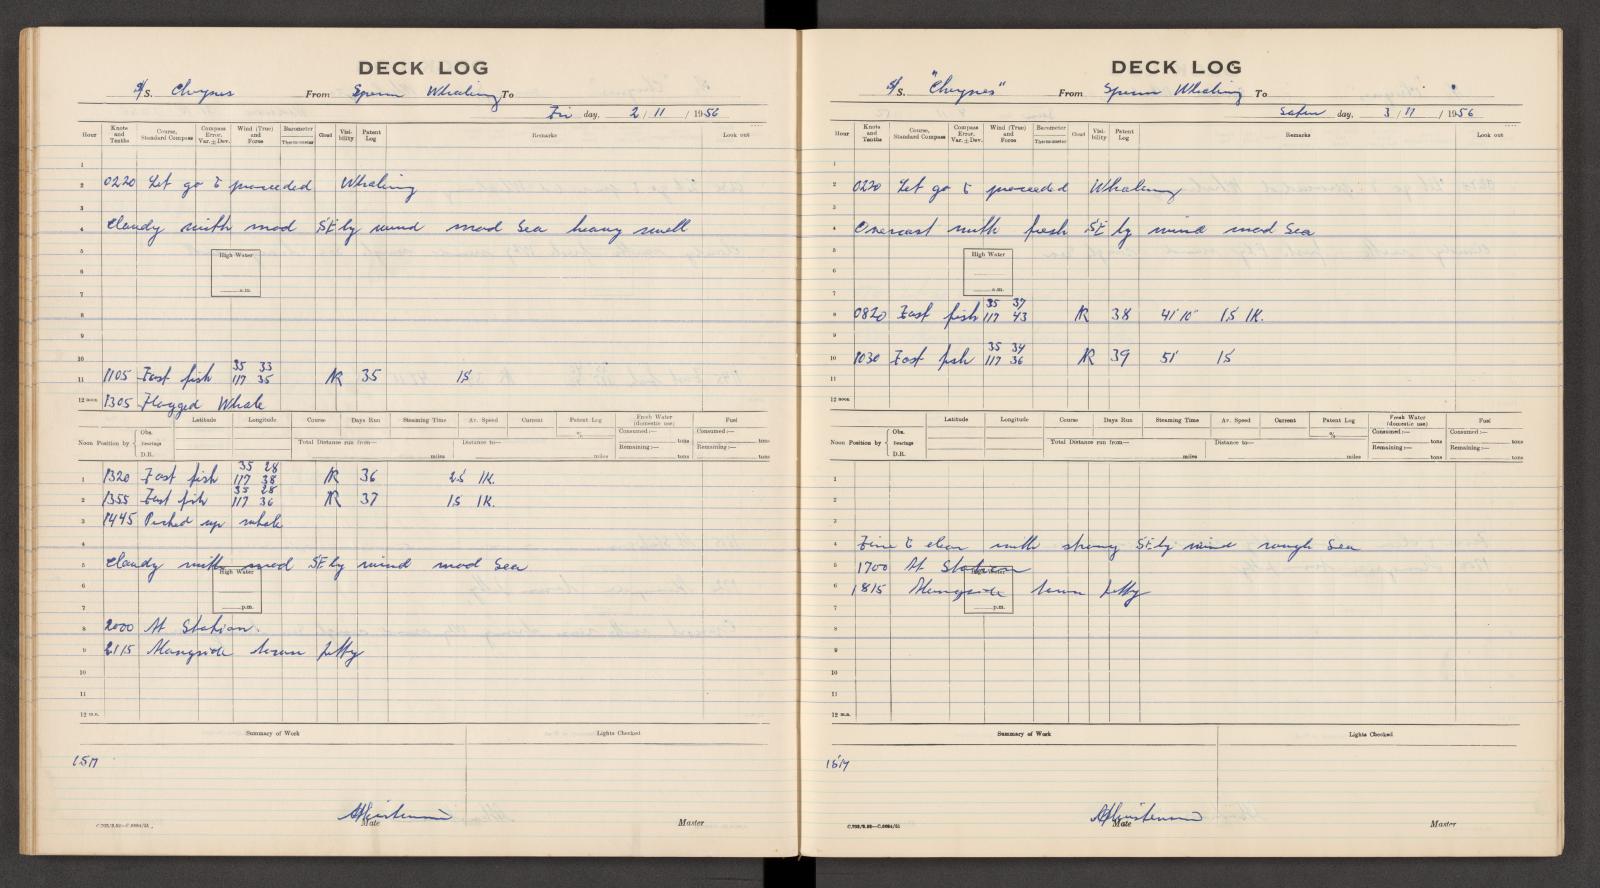 DECK LOG
S/S. Cheynes From Sperm Whaling To
Fri day, 2 / 11 / 1956
Hour Knots and Tenths Course, Standard Compass Compass Error. Var. ± Dev. Wind (True) and Force Barometer Thermometer Cloud Visibility Patent Log Remarks Look out
1
2 0220 Let go & proceeded Whaling
3
4 Cloudy with mod SE'ly wind mod Sea heavy swell
5
High Water
6
a.m.
7
8
9
10
35 33
11 1105 Fast fish 117 35 R 35 1S
12 noon 1305 Flagged Whale
Latitude Longitude Course Days Run Steaming Time Av. Speed Current Patent Log % Fresh Water (domestic use) Fuel
Noon Position by { Obs. Bearings D.R. Total Distance run from— miles Distance to— miles Consumed:— tons Remaining:— tons Consumed:— Remaining:— tons
35 28
1 1320 Fast fish 117 38 R 36 2S 1K.
35 28
2 1355 Fast fish 117 36 R 37 1S 1K.
3 1445 Picked up whale
4
5 Cloudy with mod SE'ly wind mod Sea
High Water
6
p.m.
7
8 2000 At Station.
9 2115 Alongside town jetty
10
11
12 m.n.
Summary of Work Lights Checked
15M
Mate Master
DECK LOG
S/S. "Cheynes" From Sperm Whaling To
Satur day, 3 / 11 / 1956
Hour Knots and Tenths Course, Standard Compass Compass Error. Var. ± Dev. Wind (True) and Force Barometer Thermometer Cloud Visibility Patent Log Remarks Look out
1
2 0220 Let go & proceeded Whaling
3
4 Overcast with fresh SE'ly wind mod Sea
5
High Water
6
a.m.
7
35 37
8 0820 Fast fish 117 43 R 38 41' 10" 1S 1K.
9
35 34
10 1030 Fast fish 117 36 R 39 51' 1S
11
12 noon
Latitude Longitude Course Days Run Steaming Time Av. Speed Current Patent Log % Fresh Water (domestic use) Fuel
Noon Position by { Obs. Bearings D.R. Total Distance run from— miles Distance to— miles Consumed:— tons Remaining:— tons Consumed:— Remaining:— tons
1
2
3
4 Fine & clear with strong SE'ly wind rough Sea
5 1700 At Station
High Water
6 1815 Alongside town jetty
p.m.
7
8
9
10
11
12 m.n.
Summary of Work Lights Checked
16M
Mate Master